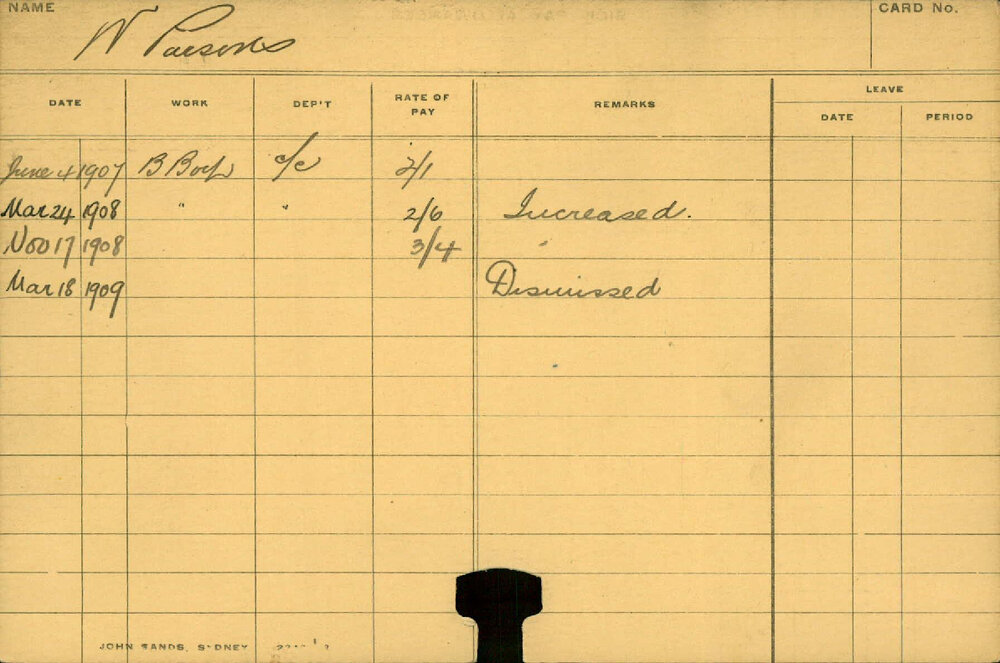 NAME CARD No.
W Parsons
DATE WORK DEP'T RATE OF PAY REMARKS LEAVE
DATE PERIOD
June 4 1907 B Boy c/c 2/1
Mar 24 1908 " " 2/6 Increased.
Nov 17 1908 3/4 "
Mar 18 1909 Dismissed
JOHN SANDS, SYDNEY